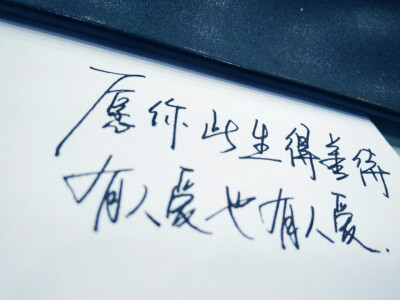 愿你此生得善待
有人爱也有人爱.